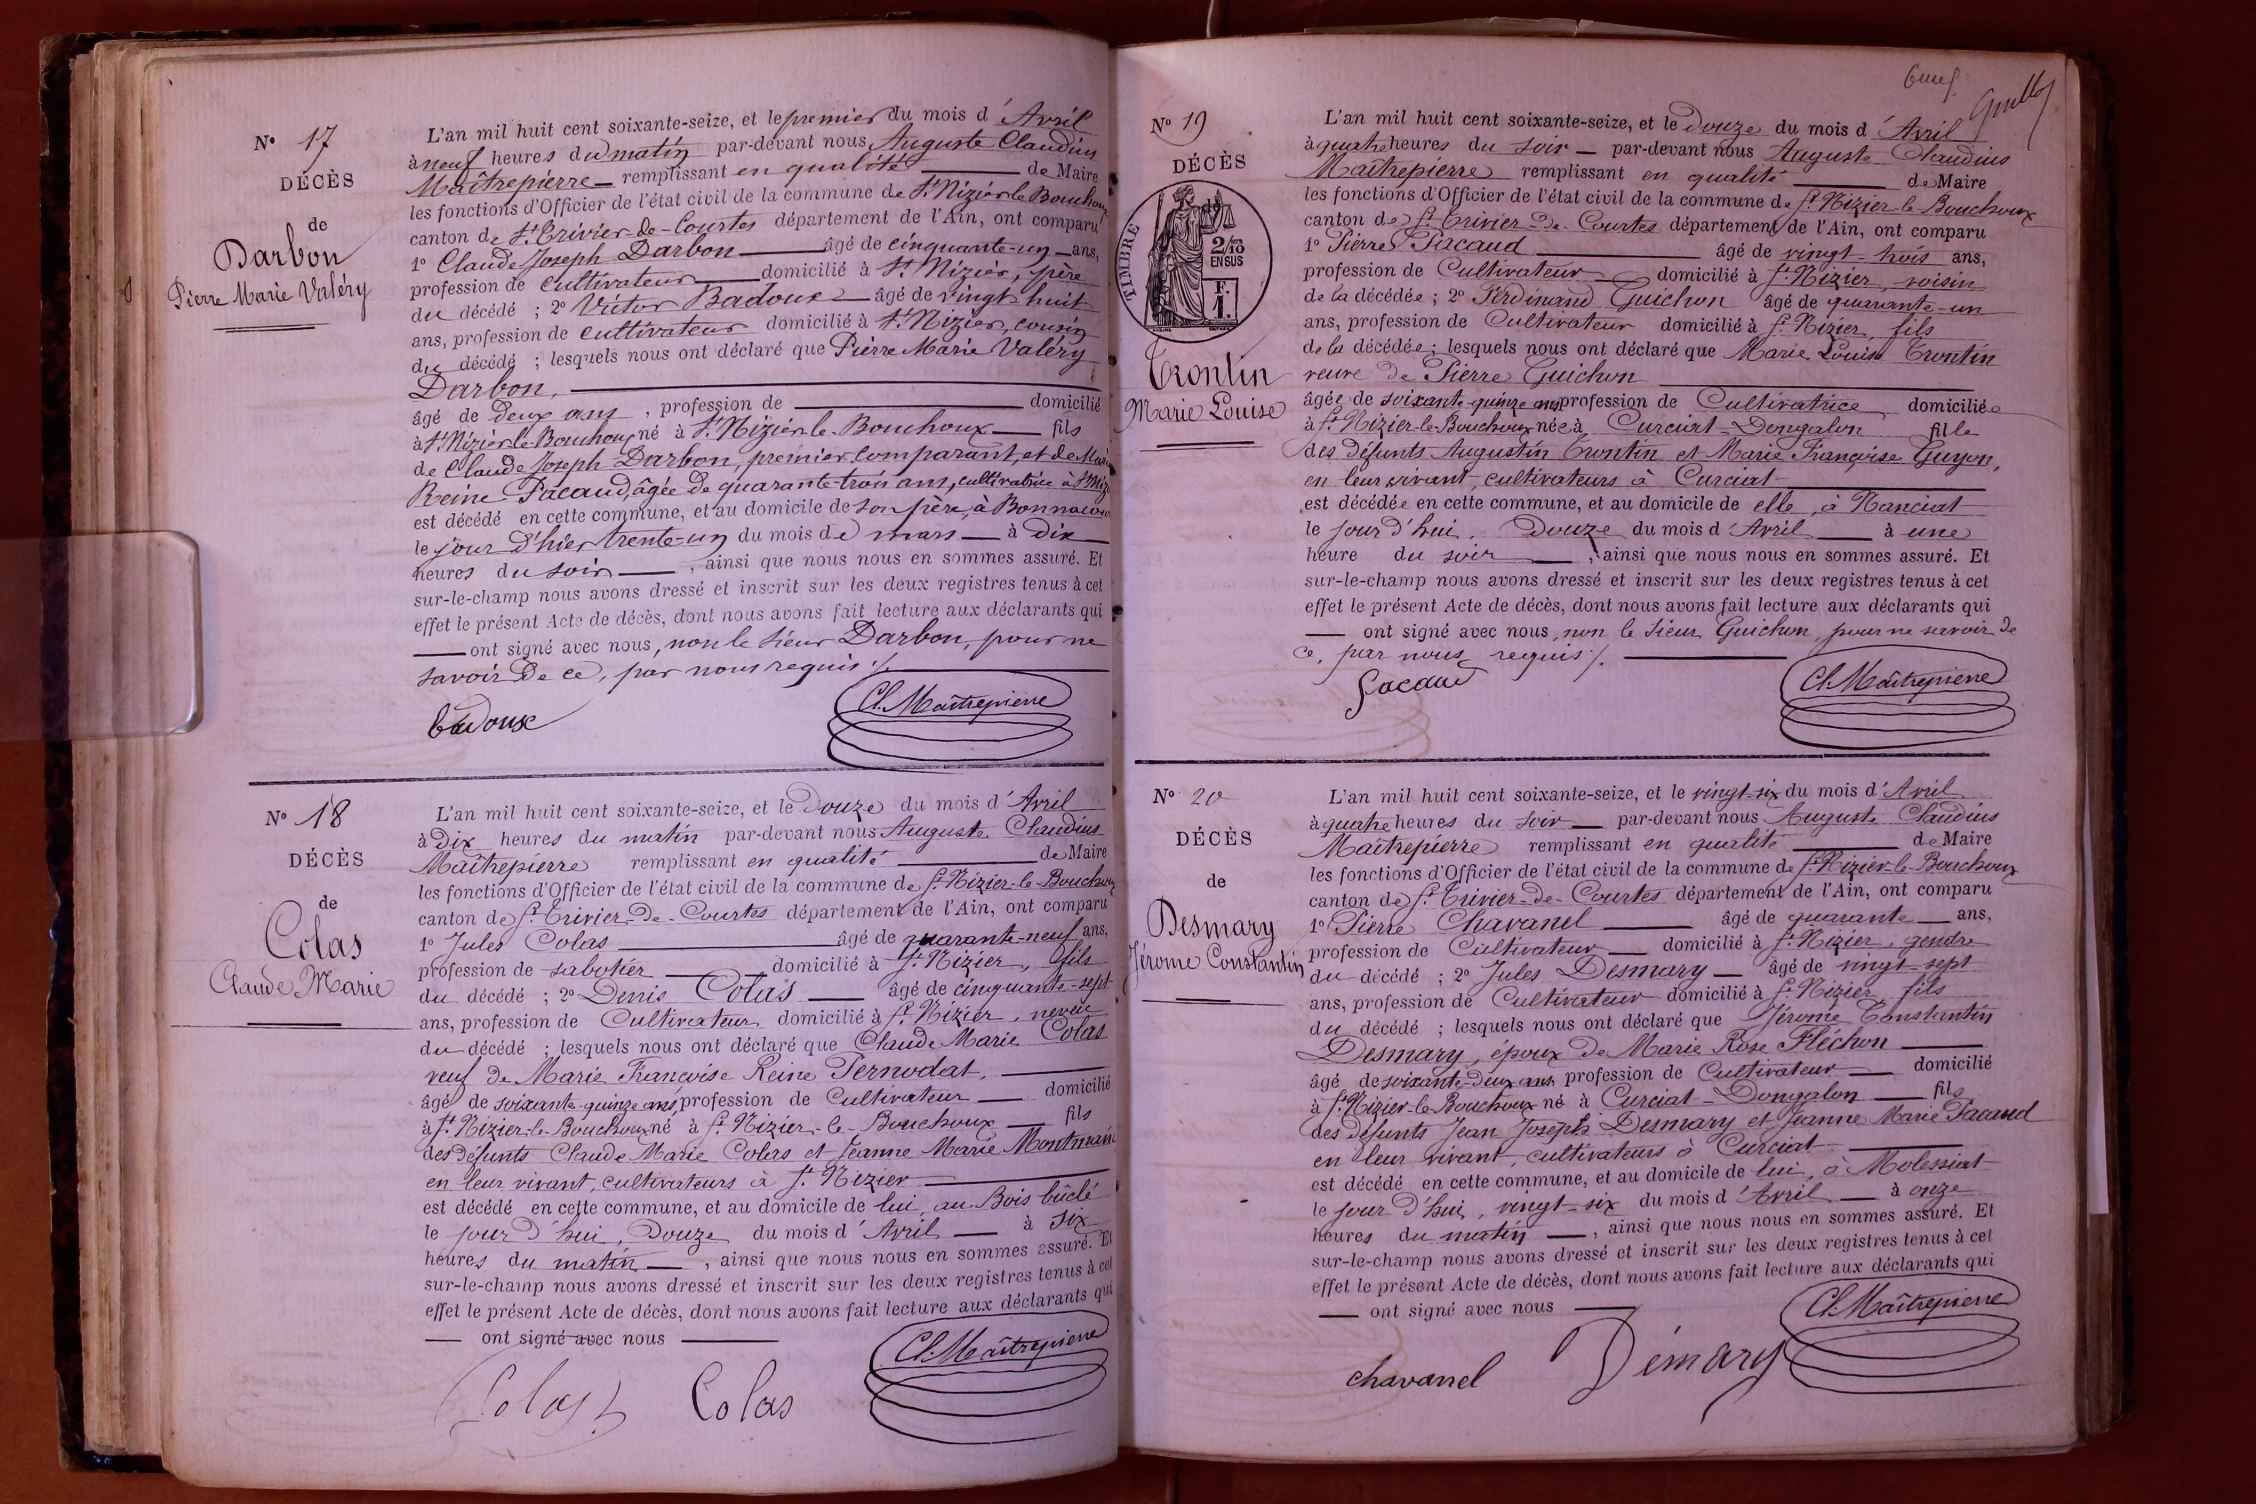 N° 17
DÉCÈS
de
Darbon
Pierre Marie Valéry
L'an mil huit cent soixante-seize, et le premier du mois d'Avril
à neuf heures du matin par-devant nous Auguste Claudius
Maîtrepierre remplissant en qualité de Maire
les fonctions d'Officier de l'état civil de la commune de St Nizier le Bouchoux
canton de St Trivier-de-Courtes département de l'Ain, ont comparu
1° Claude Joseph Darbon âgé de cinquante-un ans,
profession de cultivateur domicilié à St Nizier, père
du décédé ; 2° Victor Badoux âgé de vingt-huit
ans, profession de cultivateur domicilié à St Nizier, cousin
du décédé ; lesquels nous ont déclaré que Pierre Marie Valéry
Darbon,
âgé de Deux ans, profession de domicilié
à St Nizier le Bouchoux né à St Nizier-le-Bouchoux fils
de Claude Joseph Darbon, premier comparant, et de Marie
Reine Pacaud, âgée de quarante-trois ans, cultivatrice à St Nizier
est décédé en cette commune, et au domicile de son père, à
le jour d'hier trente-un du mois de mars à Dix
heures du soir, ainsi que nous nous en sommes assuré. Et
sur-le-champ nous avons dressé et inscrit sur les deux registres tenus à cet
effet le présent Acte de décès, dont nous avons fait lecture aux déclarants qui
ont signé avec nous, non le sieur Darbon, pour ne
savoir De ce, par nous requis ./.
Badoux
Cl. Maîtrepierre
N° 18
DÉCÈS
de
Colas
Claude Marie
L'an mil huit cent soixante-seize, et le Douze du mois d'Avril
à Dix heures du matin par-devant nous Auguste Claudius
Maîtrepierre remplissant en qualité de Maire
les fonctions d'Officier de l'état civil de la commune de St Nizier-le-Bouchoux
canton de St Trivier-de-Courtes département de l'Ain, ont comparu
1° Jules Colas âgé de quarante-neuf ans,
profession de sabotier domicilié à St Nizier, fils
du décédé ; 2° Denis Colas âgé de cinquante-sept
ans, profession de Cultivateur domicilié à St Nizier, neveu
du décédé ; lesquels nous ont déclaré que Claude Marie Colas
veuf de Marie Françoise Reine Pernodat,
âgé de soixante-quinze ans, profession de Cultivateur domicilié
à St Nizier-le-Bouchoux né à St Nizier-le-Bouchoux fils
des défunts Claude Marie Colas et Jeanne Marie Montmain
en leur vivant, cultivateurs à St Nizier
est décédé en cette commune, et au domicile de lui, au Bois bûclé
le jour D'hui, Douze du mois d'Avril à six
heures du matin, ainsi que nous nous en sommes assuré. Et
sur-le-champ nous avons dressé et inscrit sur les deux registres tenus à cet
effet le présent Acte de décès, dont nous avons fait lecture aux déclarants qui
ont signé avec nous
Colas Colas
Cl. Maîtrepierre
N° 19
DÉCÈS
de
TIMBRE
2/10
EN SUS
F.
1.
Trontin
Marie Louise
L'an mil huit cent soixante-seize, et le Douze du mois d'Avril
à quatre heures du soir par-devant nous Auguste Claudius
Maîtrepierre remplissant en qualité de Maire
les fonctions d'Officier de l'état civil de la commune de St Nizier-le-Bouchoux
canton de St Trivier-de-Courtes département de l'Ain, ont comparu
1° Pierre Pacaud âgé de vingt-trois ans,
profession de Cultivateur domicilié à St Nizier, voisin
de la décédée ; 2° Ferdinand Guichon âgé de quarante-un
ans, profession de Cultivateur domicilié à St Nizier, fils
de la décédée ; lesquels nous ont déclaré que Marie Louise Trontin
veuve de Pierre Guichon
âgée de soixante-quinze ans profession de Cultivatrice domiciliée
à St Nizier-le-Bouchoux née à Curciat-Dongalon fille
des défunts Augustin Trontin et Marie Françoise Guyon,
en leur vivant, cultivateurs à Curciat
est décédée en cette commune, et au domicile de elle, à Nanciat
le jour d'hui, Douze du mois d'Avril à une
heure du soir, ainsi que nous nous en sommes assuré. Et
sur-le-champ nous avons dressé et inscrit sur les deux registres tenus à cet
effet le présent Acte de décès, dont nous avons fait lecture aux déclarants qui
ont signé avec nous, non le sieur Guichon, pour ne savoir De
ce, par nous requis ./.
Pacaud
Cl. Maîtrepierre
N° 20
DÉCÈS
de
Desmary
Jérome Constantin
L'an mil huit cent soixante-seize, et le vingt-six du mois d'Avril
à quatre heures du soir par-devant nous Auguste Claudius
Maîtrepierre remplissant en qualité de Maire
les fonctions d'Officier de l'état civil de la commune de St Nizier-le-Bouchoux
canton de St Trivier-de-Courtes département de l'Ain, ont comparu
1° Pierre Chavanel âgé de quarante ans,
profession de Cultivateur domicilié à St Nizier, gendre
du décédé ; 2° Jules Desmary âgé de vingt-sept
ans, profession de Cultivateur domicilié à St Nizier fils
du décédé ; lesquels nous ont déclaré que Jérome Constantin
Desmary, époux de Marie Rose Fléchon
âgé de soixante-deux ans, profession de Cultivateur domicilié
à St Nizier-le-Bouchoux né à Curciat-Dongalon fils
des défunts Jean Joseph Desmary et Jeanne Marie Pacaud
en leur vivant, cultivateurs à Curciat
est décédé en cette commune, et au domicile de lui, à Molessiat
le jour D'hui, vingt-six du mois d'Avril à onze
heures du matin, ainsi que nous nous en sommes assuré. Et
sur-le-champ nous avons dressé et inscrit sur les deux registres tenus à cet
effet le présent Acte de décès, dont nous avons fait lecture aux déclarants qui
ont signé avec nous
chavanel
Démary
Cl. Maîtrepierre